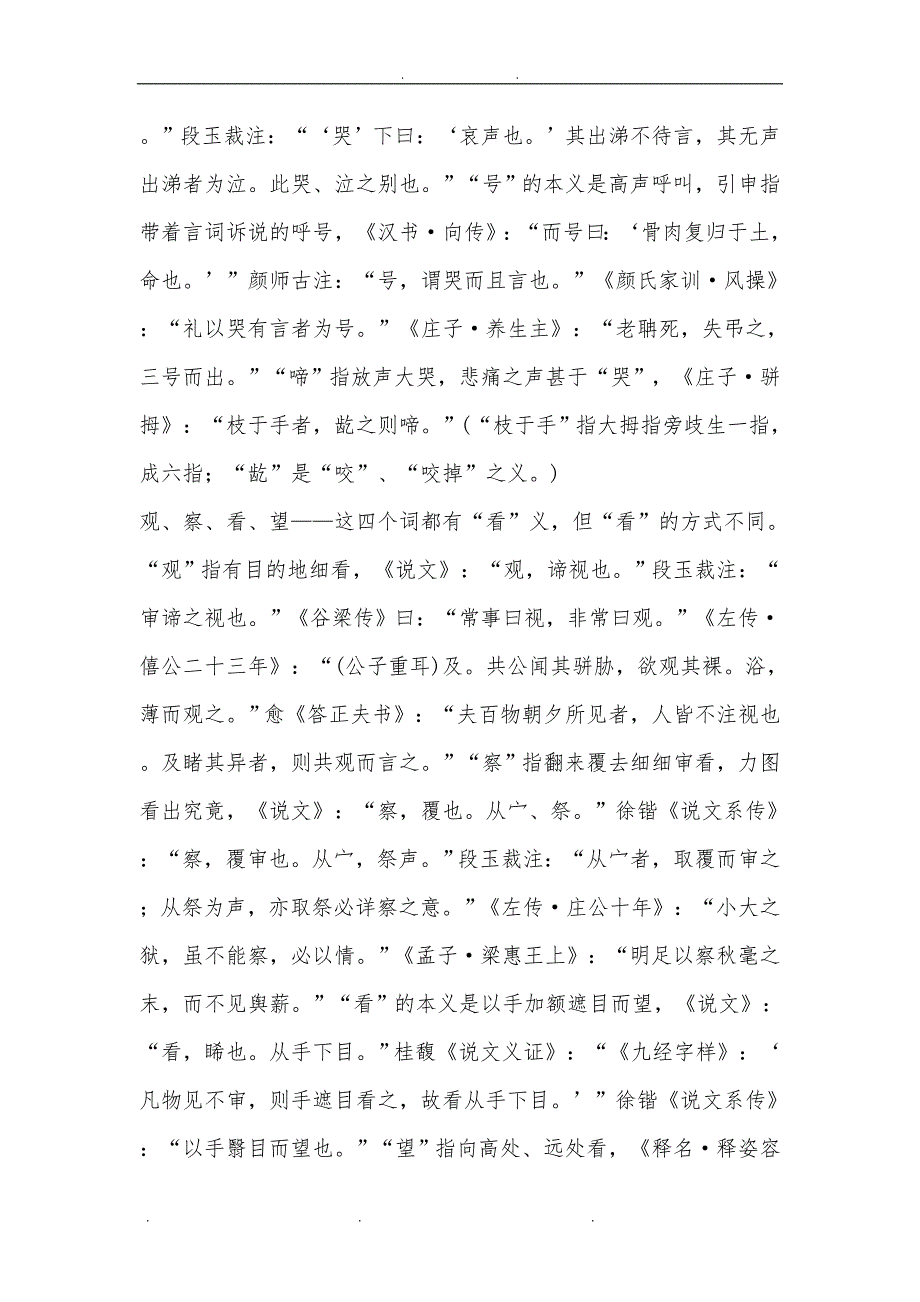 。”段玉裁注：“‘哭’下曰：‘哀声也。’其出涕不待言，其无声
出涕者为泣。此哭、泣之别也。”“号”的本义是高声呼叫，引申指
带着言词诉说的呼号，《汉书·向传》：“而号曰：‘骨肉复归于土，
命也。’”颜师古注：“号，谓哭而且言也。”《颜氏家训·风操》
：“礼以哭有言者为号。”《庄子·养生主》：“老聃死，失弔之，
三号而出。”“啼”指放声大哭，悲痛之声甚于“哭”，《庄子·骈
拇》：“枝于手者，龁之则啼。”(“枝于手”指大拇指旁歧生一指，
成六指；“龁”是“咬”、“咬掉”之义。)
观、察、看、望——这四个词都有“看”义，但“看”的方式不同。
“观”指有目的地细看，《说文》：“观，谛视也。”段玉裁注：“
审谛之视也。”《谷梁传》曰：“常事曰视，非常曰观。”《左传·
僖公二十三年》：“(公子重耳)及。共公闻其骈胁，欲观其裸。浴，
薄而观之。”愈《答正夫书》：“夫百物朝夕所见者，人皆不注视也
。及睹其异者，则共观而言之。”“察”指翻来覆去细细审看，力图
看出究竟，《说文》：“察，覆也。从宀、祭。”徐锴《说文系传》
：“察，覆审也。从宀，祭声。”段玉裁注：“从宀者，取覆而审之
；从祭为声，亦取祭必详察之意。”《左传·庄公十年》：“小大之
狱，虽不能察，必以情。”《孟子·梁惠王上》：“明足以察秋毫之
末，而不见舆薪。”“看”的本义是以手加额遮目而望，《说文》：
“看，睎也。从手下目。”桂馥《说文义证》：“《九经字样》：‘
凡物见不审，则手遮目看之，故看从手下目。’”徐锴《说文系传》
：“以手翳目而望也。”“望”指向高处、远处看，《释名·释姿容